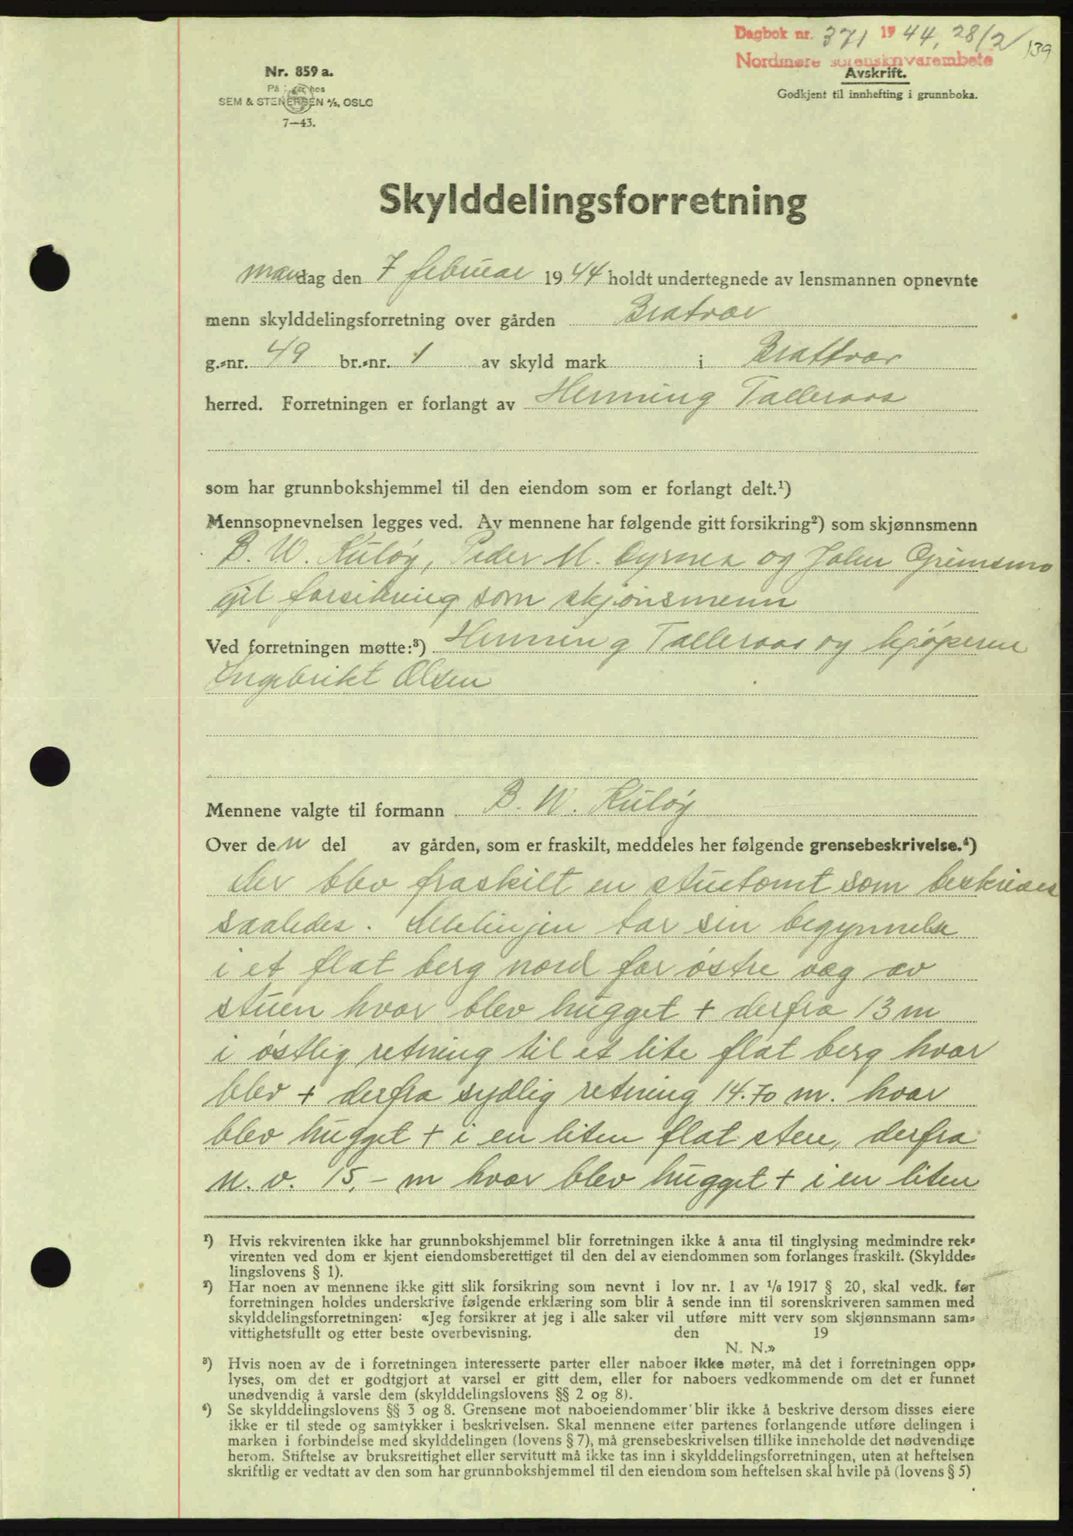 Dagbok nr. 371 1944, 28/2
139
Nordmøre sorenskriverembete
Nr. 859 a.
SEM & STENERSEN A/S, OSLO
7—43.
Avskrift.
Godkjent til innhefting i grunnboka.
Skylddelingsforretning
mandag den 7 februar 1944 holdt undertegnede av lensmannen opnevnte
menn skylddelingsforretning over gården Bratvær
g.-nr. 49 br.-nr. 1 av skyld mark i Brattvær
herred. Forretningen er forlangt av Henning Talleraas
som har grunnbokshjemmel til den eiendom som er forlangt delt.¹)
Mennsopnevnelsen legges ved. Av mennene har følgende gitt forsikring²) som skjønnsmenn
B. W. Kuløy, Peder M. Cyrnes og John Grimsmo
git forsikring som skjønsmenn
Ved forretningen møtte:³) Henning Talleraas og kjøperen
Ingebrikt Olsen
Mennene valgte til formann B. W. Kuløy
Over den del av gården, som er fraskilt, meddeles her følgende grensebeskrivelse.⁴)
Der blev fraskilt en stuetomt som beskrives
saaledes. Delelinjen tar sin begynnelse
i et flat berg nord for østre væg av
stuen hvor blev hugget + derfra 13 m
i østlig retning til et lite flat berg hvor
blev + derfra sydlig retning 14.70 m. hvor
blev hugget + i en liten flat sten, derfra
n. v. 15,– m hvor blev hugget + i en liten
¹) Hvis rekvirenten ikke har grunnbokshjemmel blir forretningen ikke å anta til tinglysing medmindre rek-
virenten ved dom er kjent eiendomsberettiget til den del av eiendommen som forlanges fraskilt. (Skyldde-
lingslovens § 1).
²) Har noen av mennene ikke gitt slik forsikring som nevnt i lov nr. 1 av 1/6 1917 § 20, skal vedk. før
forretningen holdes underskrive følgende erklæring som blir å sende inn til sorenskriveren sammen med
skylddelingsforretningen: «Jeg forsikrer at jeg i alle saker vil utføre mitt verv som skjønnsmann sam-
vittighetsfullt og etter beste overbevisning. den 19
N. N.»
³) Hvis noen av de i forretningen interesserte parter eller naboer ikke møter, må det i forretningen opp-
lyses, om det er godtgjort at varsel er gitt dem, eller for naboers vedkommende om det er funnet
unødvendig å varsle dem (skylddelingslovens §§ 2 og 8).
⁴) Se skylddelingslovens §§ 3 og 8. Grensene mot naboeiendommer blir ikke å beskrive dersom disses eiere
ikke er til stede og samtykker i beskrivelsen. Skal mennene etter partenes forlangende utføre delingen i
marken i forbindelse med skylddelingen (lovens § 7), må grensebeskrivelsen tillike inneholde det nødvendige
herom. Stiftelse av bruksrettighet eller servitutt må ikke tas inn i skylddelingsforretningen, uten at heftelsen
skriftlig er vedtatt av den som har grunnbokshjemmel til den eiendom som heftelsen skal hvile på (lovens § 5)